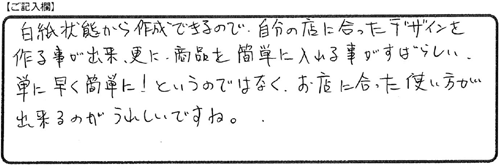 【ご記入欄】
白紙状態から作成できるので、自分の店に合ったデザインを
作る事が出来、更に、商品を簡単に入れる事がすばらしい、
単に早く簡単に!というのではなく、お店に合った使い方が
出来るのがうれしいですね。